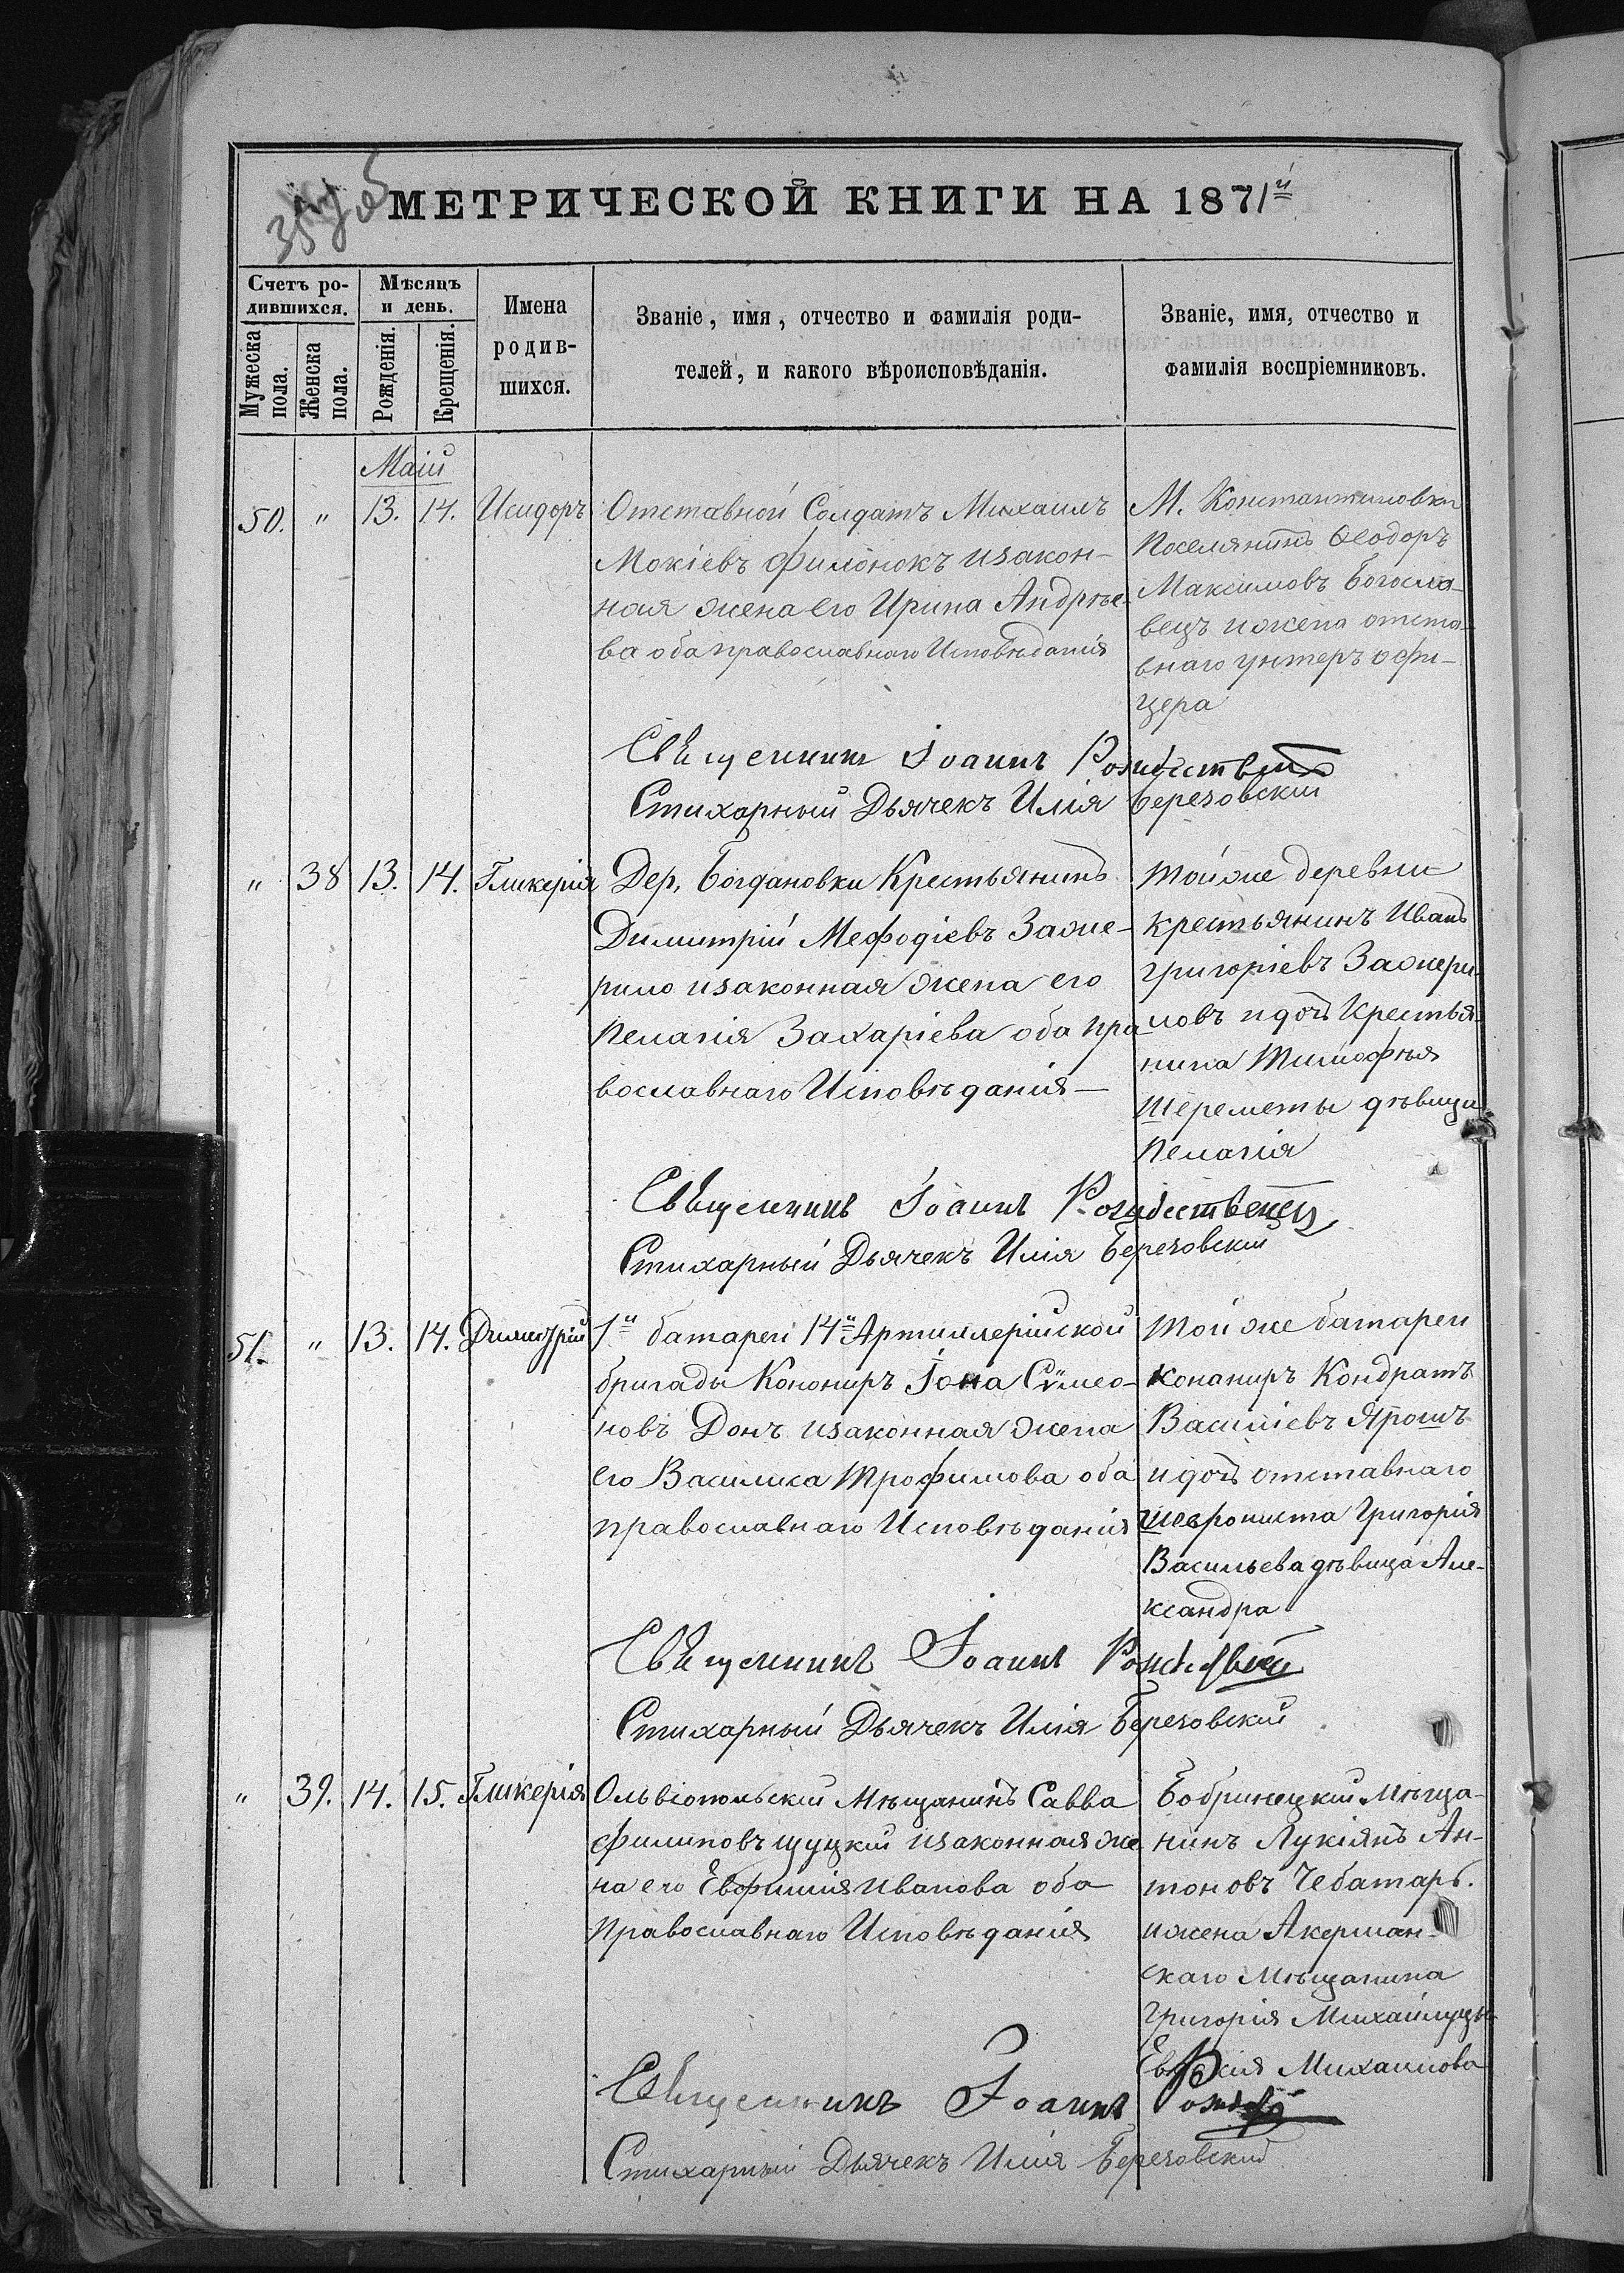 МЕТРИЧЕСКОЙ КНИГИ НА 1871й
Счетъ ро-
дившихся.
Мужеска
пола.
Женска
пола.
Мѣсяцъ
и день.
Рожденія.
Крещенія.
Имена
родив-
шихся.
Званіе, имя, отчество и фамилія роди-
телей, и какого вѣроисповѣданія.
Званіе, имя, отчество и
фамилія воспріемниковъ.
Маій
50. " 13. 14. Исидоръ
Отставной Солдатъ Михаилъ
Мокіевъ Филонокъ изакон-
ная жена его Ирина Андрѣе-
ва оба православнаго Исповѣданія
М. Константиновки
Поселянинъ Ѳеодоръ
Максимовъ Богосла-
вецъ ижена отста-
внаго унтеръ офи-
цера
Священникъ Іоаннъ
Стихарный Дьячекъ Илія Березовскій
" 38 13. 14. Гликерія
Дер. Богдановки Крестьянинъ
Димитрій Мефодіевъ Заже-
рило изаконная жена его
Пелагія Захаріева оба пра
вославнаго Исповѣданія—
Тойже деревни
крестьянинъ Иванъ
Григоріевъ Зажери-
ловъ идочь Крестья-
нина Тимофѣя
Шереметы дѣвица
Пелагія
Священникъ Іоаннъ Рождественскій
Стихарный Дьячекъ Илія Березовскій
51. " 13. 14. Димитрій
1й батареи 14й Артиллерійской
бригады Канониръ Іона Сѵмео-
новъ Донъ изаконная жена
его Василиса Трофимова оба
православнаго Исповѣданія
Той же батареи
конаниръ Кондратъ
Василіевъ Ярошъ
идочь отставнаго
шеврониста Григорія
Васильева дѣвица Але-
ксандра
Священникъ Іоаннъ
Стихарный Дьячекъ Илія Березовскій
" 39. 14. 15. Гликерія
Ольвіопольскій Мѣщанинъ Савва
Филиповъ Щуцкій изаконная же
на его Евфимія Иванова оба
Православнаго Исповѣданія
Бобринецкій Мѣща-
нинъ Лукіянъ Ан-
тоновъ Чебатарь.
ижена Акерман-
скаго Мѣщанина
Григорія
Михаилова
Священникъ Іоаннъ
Стихарный Дьячекъ Илія Березовскій